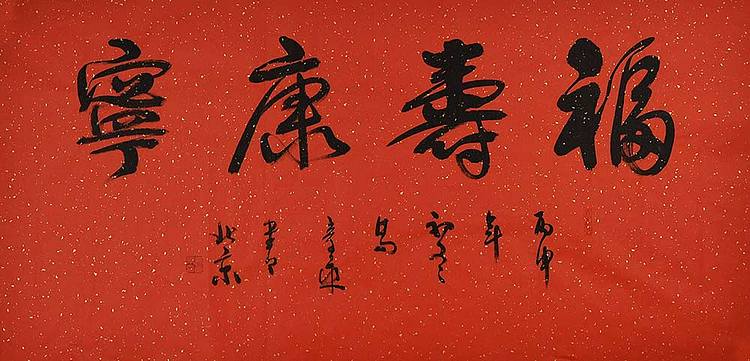 福壽康寧
丙申
年
初冬
書於
北京